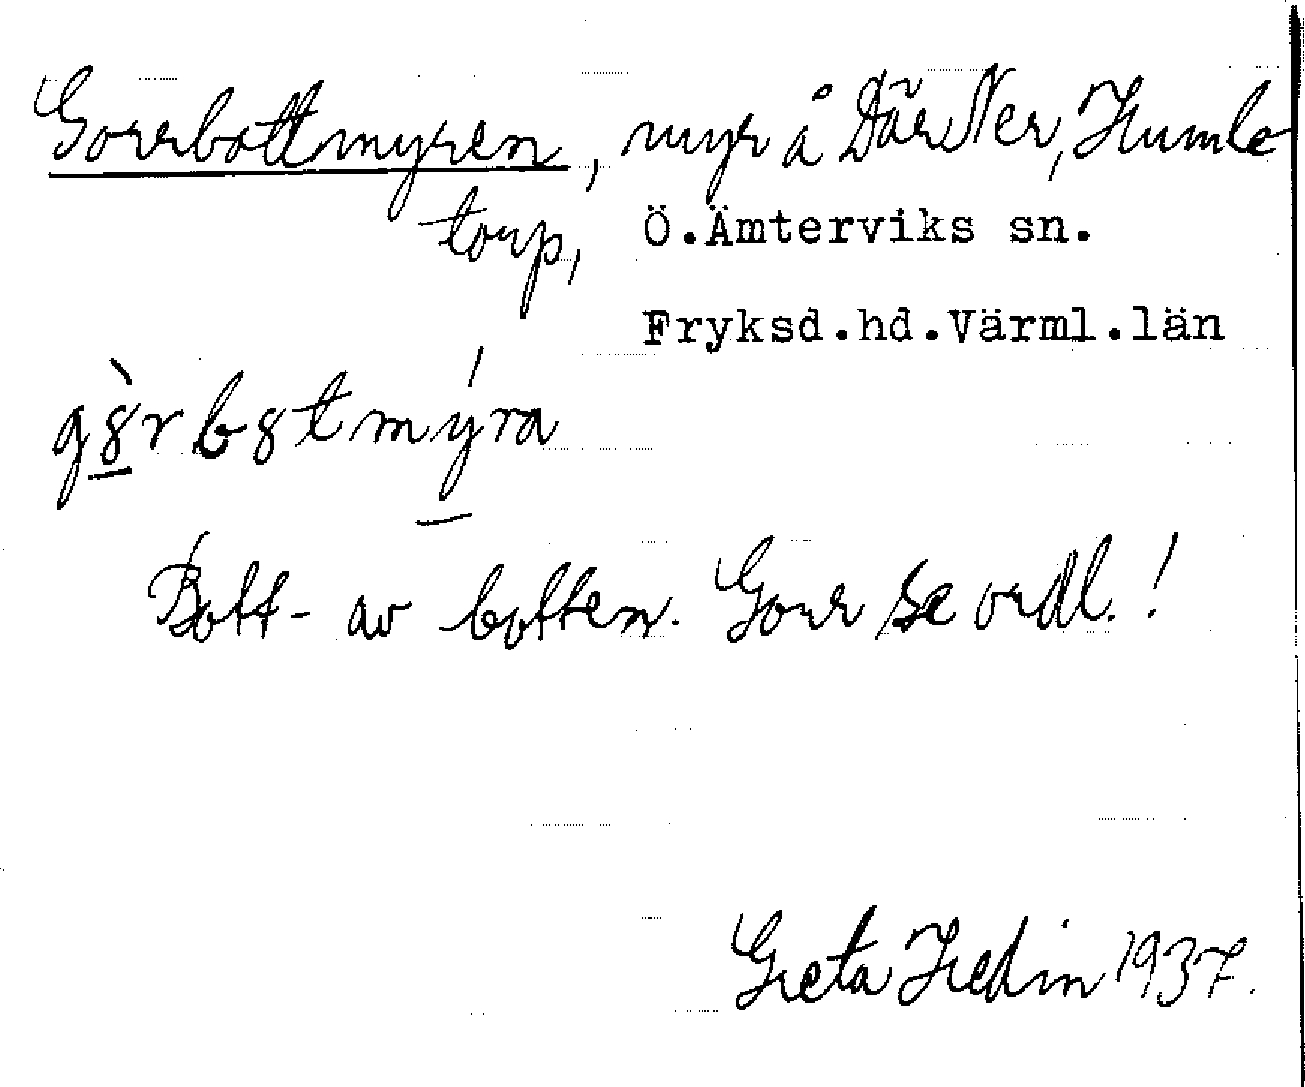 Gorrbottmyren, myr å Där Ner, Humle-
torp, Ö.Ämterviks sn.
Fryksd.hd.Värml.län
Bott- av botten. Gorr se ordl.!
Greta Hedin 1937.